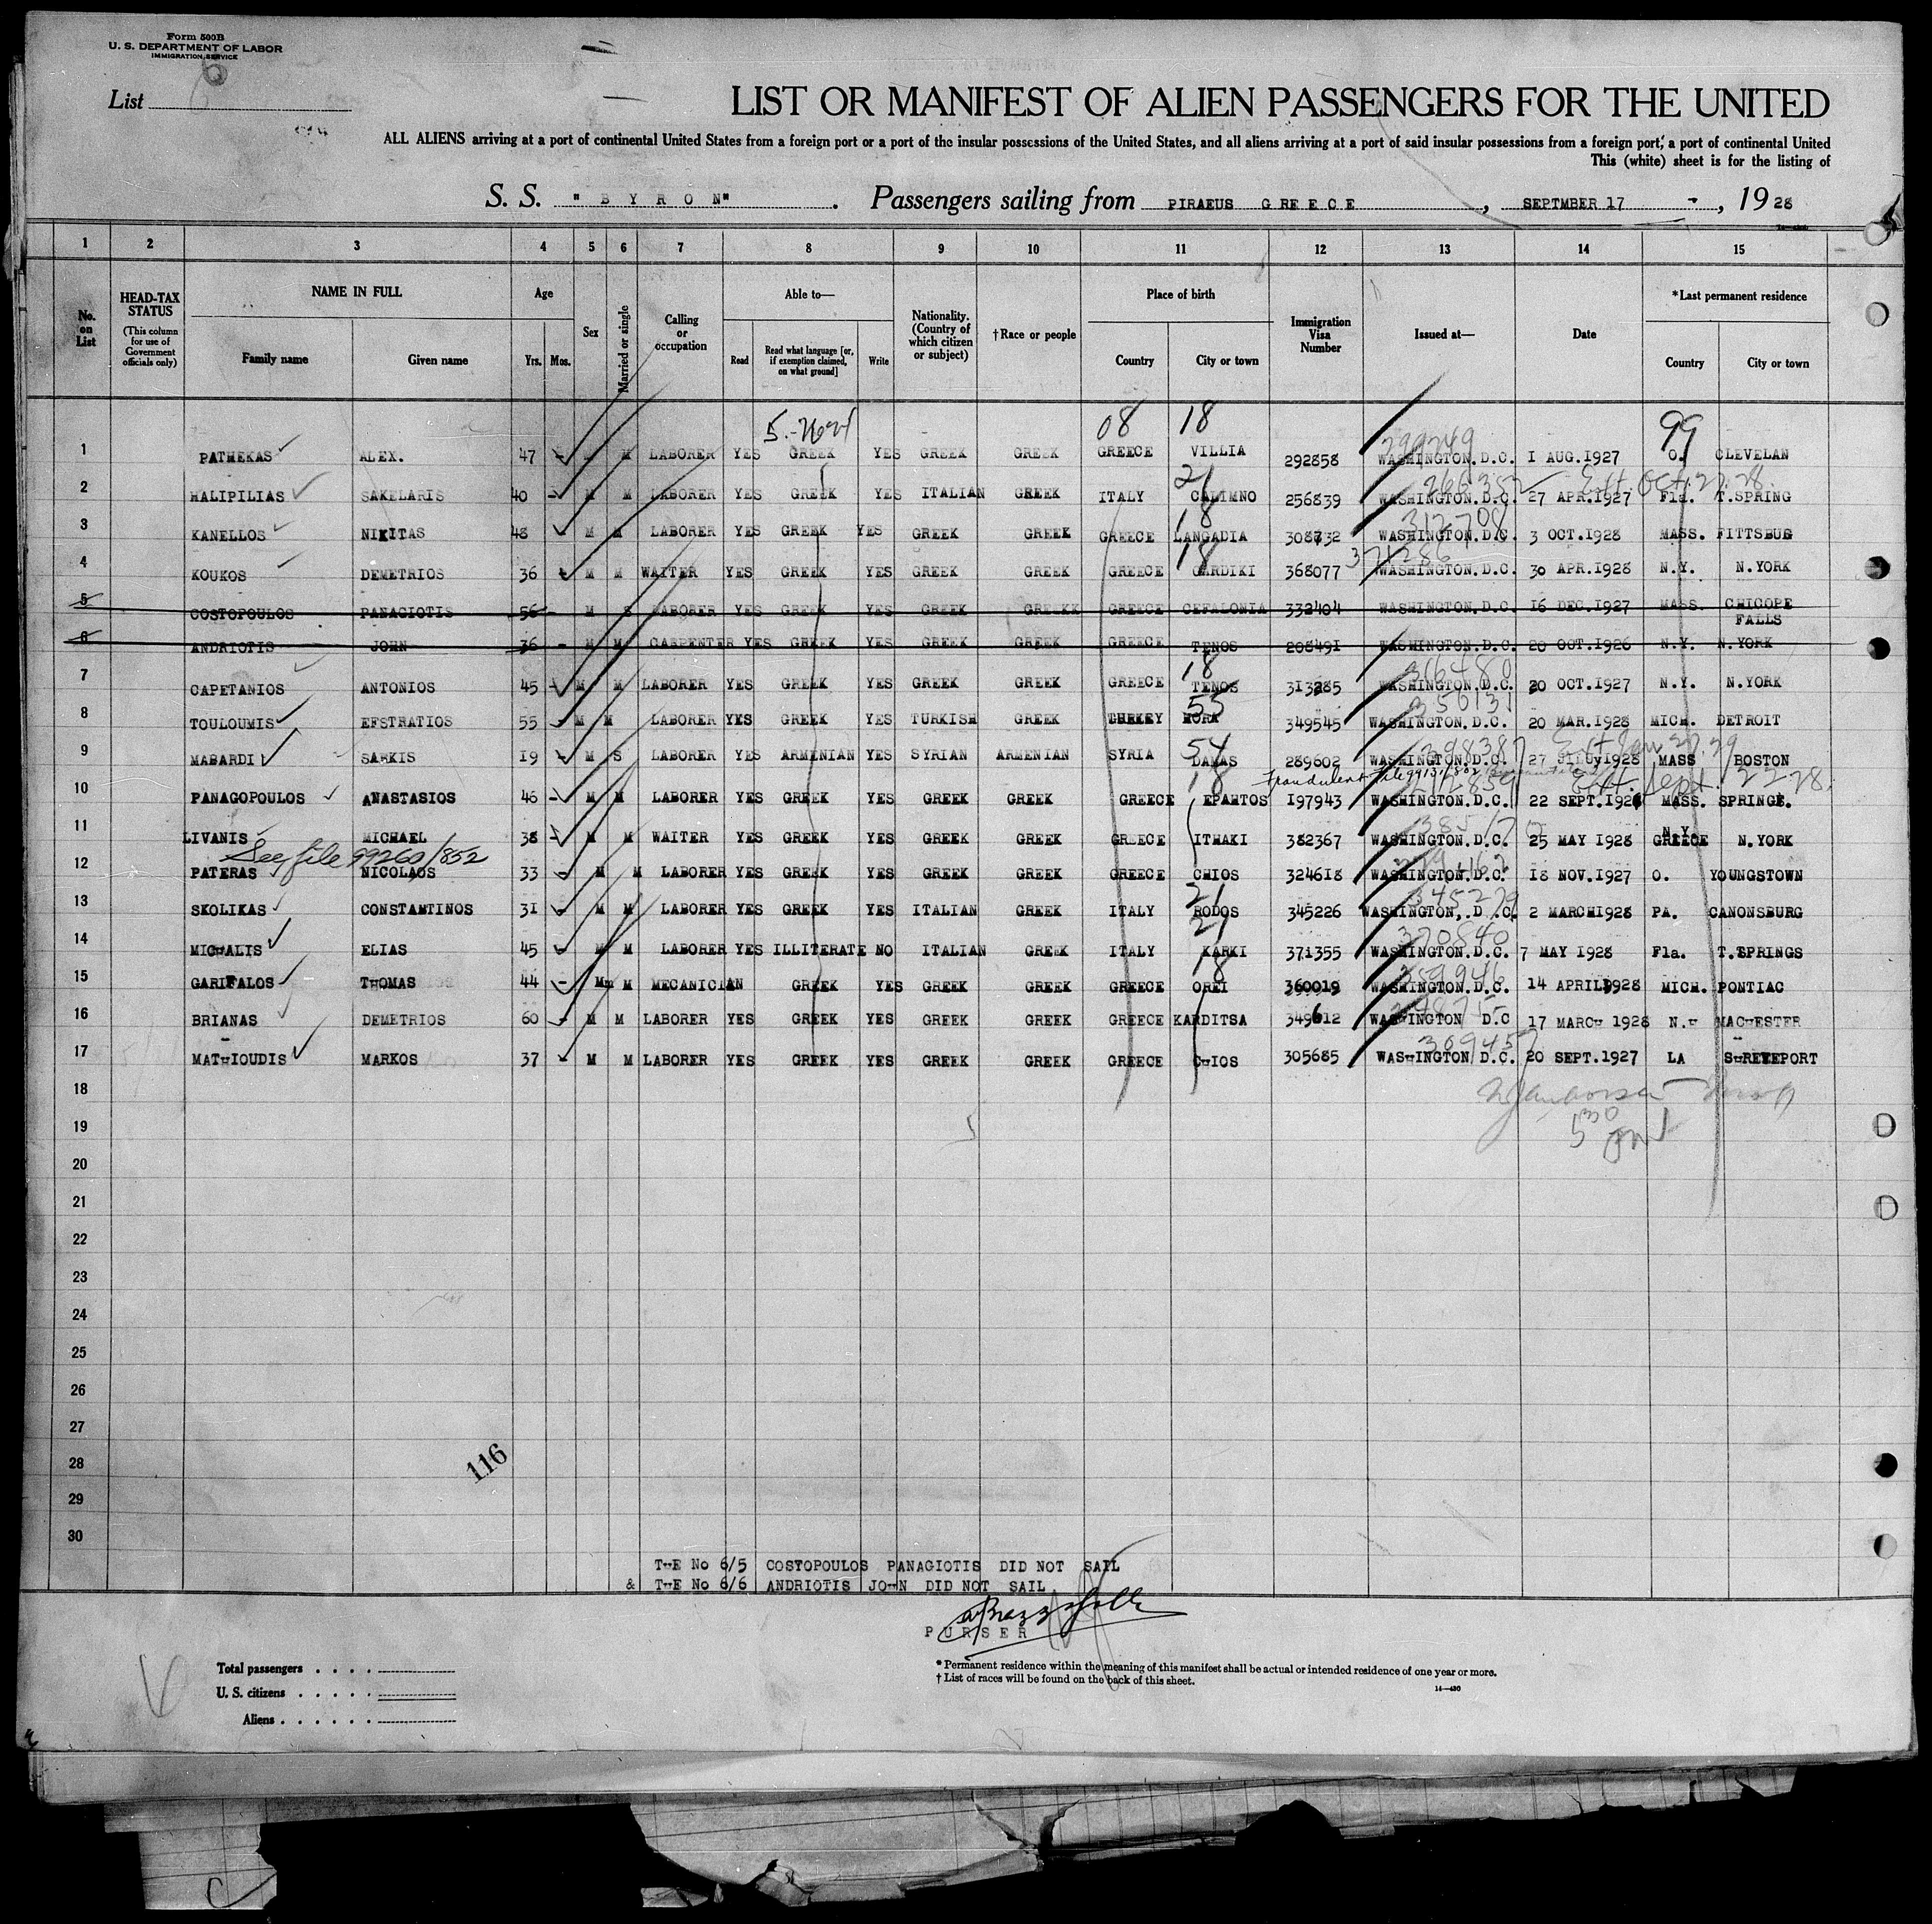 Form 500B
U. S. DEPARTMENT OF LABOR
IMMIGRATION SERVICE
List 6
LIST OR MANIFEST OF ALIEN PASSENGERS FOR THE UNITED
ALL ALIENS arriving at a port of continental United States from a foreign port or a port of the insular possessions of the United States, and all aliens arriving at a port of said insular possessions from a foreign port, a port of continental United
This (white) sheet is for the listing of
S. S. " B Y R O N" . Passengers sailing from PIRAEUS G R E E C E , SEPTMBER 17 - , 19 28
1 2 3 4 5 6 7 8 9 10 11 12 13 14 15
No. on List
HEAD-TAX STATUS (This column for use of Government officials only)
NAME IN FULL Family name Given name
Age Yrs. Mos.
Sex
Married or single
Calling or occupation
Able to— Read Read what language [or, if exemption claimed, on what ground] Write
Nationality. (Country of which citizen or subject)
†Race or people
Place of birth Country City or town
Immigration Visa Number
Issued at—
Date
*Last permanent residence Country City or town
08 18 99
299249
1 PATHEKAS ALEX. 47 - M M LABORER YES GREEK YES GREEK GREEK GREECE VILLIA 292858 WASHINGTON.D.C. I AUG.1927 O. CLEVELAN
21 266382 Ext. Oct. 27. 28.
2 HALIPILIAS SAKELARIS 40 - M M LABORER YES GREEK YES ITALIAN GREEK ITALY CALIMNO 256839 WASHINGTON.D.C. 27 APR.1927 Fla. T.SPRING
18 312708
3 KANELLOS NIKITAS 48 M M LABORER YES GREEK YES GREEK GREEK GREECE LANGADIA 308732 WASHINGTON.D.C. 3 OCT.1928 MASS. FITTSBUG
18 371286
4 KOUKOS DEMETRIOS 36 M M WAITER YES GREEK YES GREEK GREEK GREECE GARDIKI 368077 WASHINGTON.D.C. 30 APR.1928 N.Y. N.YORK
5 COSTOPOULOS PANAGIOTIS 56 - M S LABORER YES GREEK YES GREEK GREEKK GREECE CEFALONIA 332404 WASHINGTON.D.C. 16 DEC.1927 MASS. CHICOPE
FALLS
6 ANDRIOTIS JOHN 36 - M M CARPENTER YES GREEK YES GREEK GREEK GREECE TENOS 208491 WASHINGTON.D.C. 20 OCT.1926 N.Y. N.YORK
18 316480
7 CAPETANIOS ANTONIOS 45 - M M LABORER YES GREEK YES GREEK GREEK GREECE TENOS 313285 WASHINGTON.D.C. 20 OCT.1927 N.Y. N.YORK
55 356131
8 TOULOUMIS EFSTRATIOS 55 - M M LABORER YES GREEK YES TURKISH GREEK TURKEY 349545 WASHINGTON.D.C. 20 MAR.1928 MICH. DETROIT
54 398387 Ext. Jan 27. 29
9 MABARDI SARKIS 19 M S LABORER YES ARMENIAN YES SYRIAN ARMENIAN SYRIA DAMAS 289802 WASHINGTON.D.C. 27 JULY1928 MASS BOSTON
18 Fraudulent 212859 Ext. Sept. 22 28.
10 PANAGOPOULOS ANASTASIOS 46 - M M LABORER YES GREEK YES GREEK GREEK GREECE EPAKTOS 197943 WASHINGTON.D.C. 22 SEPT.192 MASS. SPRINGE.
N.Y.
11 LIVANIS MICHAEL 38 M M WAITER YES GREEK YES GREEK GREEK GREECE ITHAKI 382367 WASHINGTON.D.C. 25 MAY 1928 GREECE N.YORK
See file 99260/852
12 PATERAS NICOLAOS 33 - M M LABORER YES GREEK YES GREEK GREEK GREECE CHIOS 324618 WASHINGTON.D.C. 18 NOV.1927 O. YOUNGSTOWN
21 345279
13 SKOLIKAS CONSTANTINOS 31 - M M LABORER YES GREEK YES ITALIAN GREEK ITALY RODOS 345226 WASHINGTON, D.C. 2 MARCH1928 PA. CANONSBURG
21 370840
14 MICHALIS ELIAS 45 M M LABORER YES ILLITERATE NO ITALIAN GREEK ITALY KARKI 371355 WASHINGTON.D.C. 7 MAY 1928 Fla. T.SPRINGS
18 359946
15 GARIFALOS THOMAS 44 - M M MECANICIAN GREEK YES GREEK GREEK GREECE OREI 360019 WASHINGTON.D.C. 14 APRIL1928 MICH. PONTIAC
16 BRIANAS DEMETRIOS 60 - M M LABORER YES GREEK YES GREEK GREEK GREECE KARDITSA 349612 WASHINGTON D.C 17 MARCH 1928 N.H MACHESTER
309457
17 MATHIOUDIS MARKOS 37 - M M LABORER YES GREEK YES GREEK GREEK GREECE CHIOS 305685 WASHINGTON D.C. 20 SEPT.1927 LA SHREVEPORT
18
19 530
20
21
22
23
24
25
26
27
28 116
29
30
THE No 6/5 COSTOPOULOS PANAGIOTIS DID NOT SAIL
& THE No 6/6 ANDRIOTIS JOHN DID NOT SAIL
PURSER
Total passengers . . . .
U. S. citizens . . . . .
Aliens . . . . . .
* Permanent residence within the meaning of this manifest shall be actual or intended residence of one year or more.
† List of races will be found on the back of this sheet.
14—430